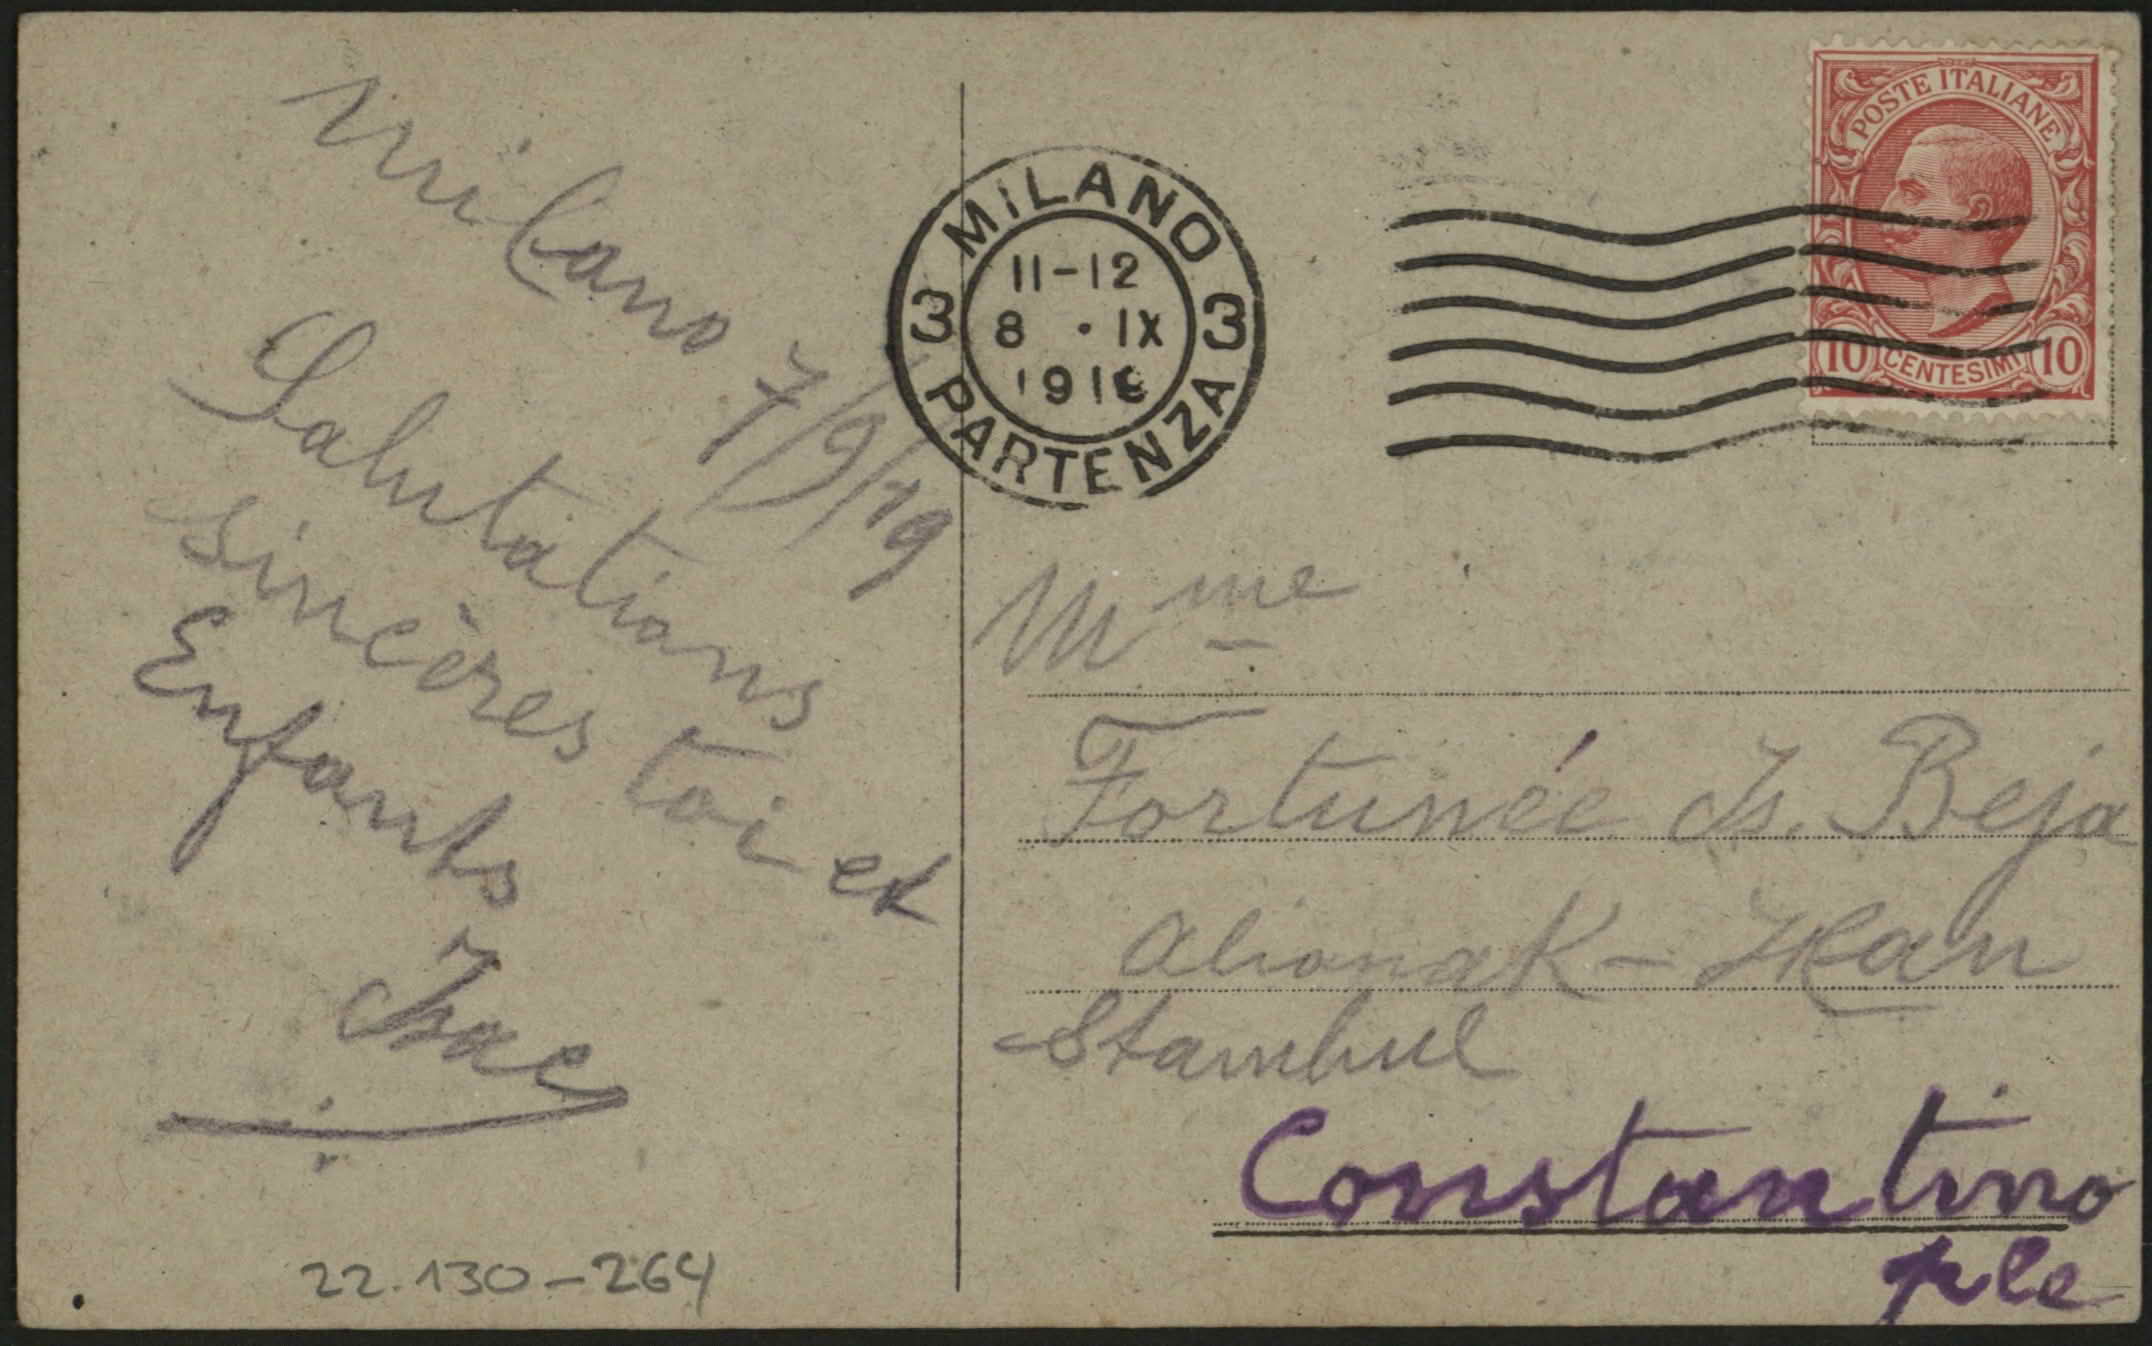 Milano 7/9/19
Salutations
sincères toi et
Enfants
Isac
22.130-264
MILANO
3 3
11-12
8 · IX
191
PARTENZA
POSTE ITALIANE
10 CENTESIMI 10
Mme
Fortunée Is. Beja
Alionak-Han
Stambul
Constantino
ple